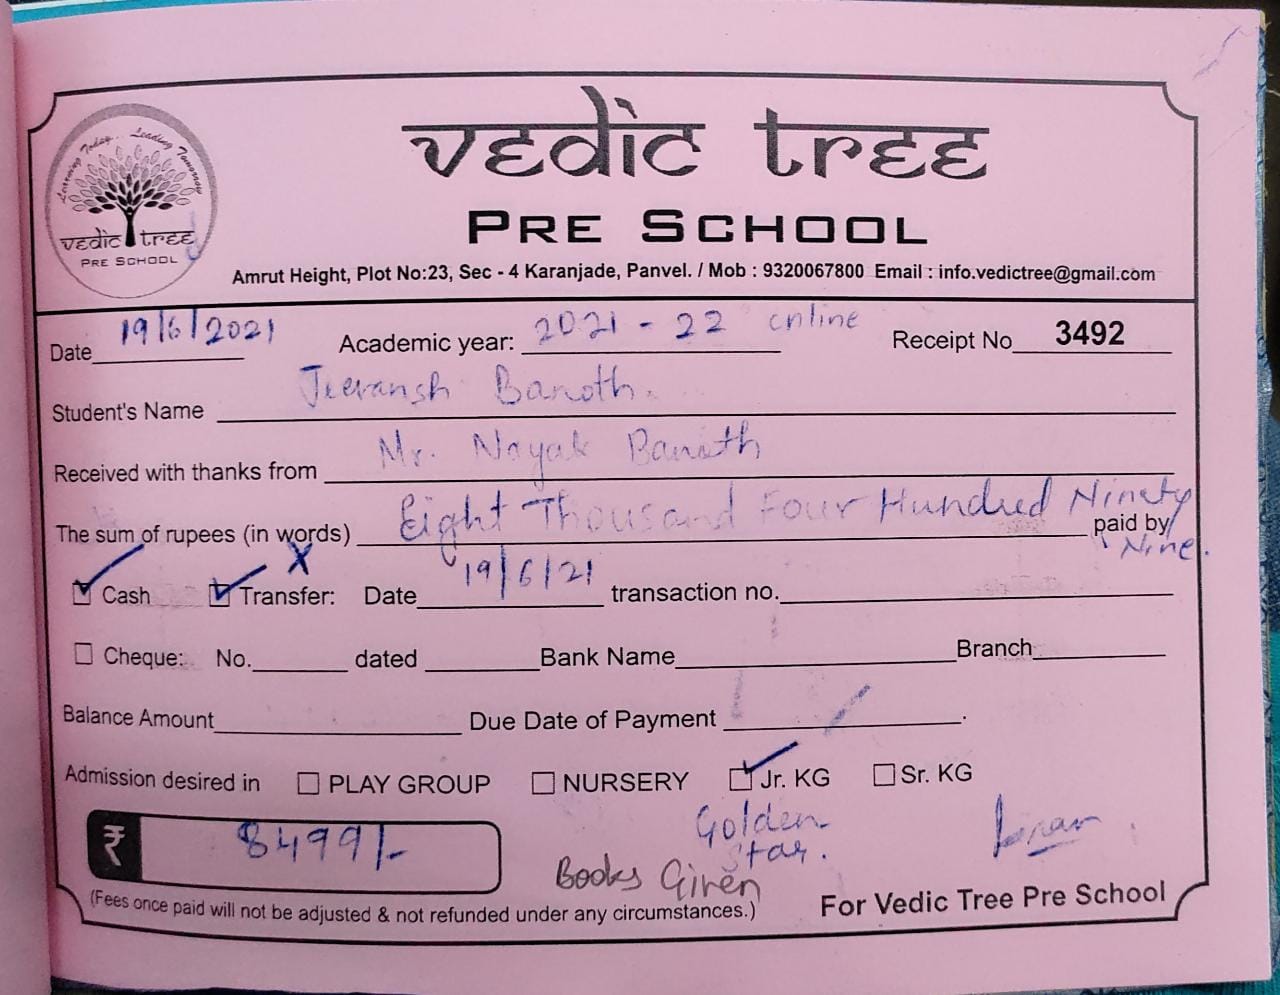 Learning Today... Leading Tomorrow
vedic tree
PRE SCHOOL
vedic tree
PRE SCHOOL
Amrut Height, Plot No:23, Sec - 4 Karanjade, Panvel. / Mob : 9320067800 Email : info.vedictree@gmail.com
Date 19/6/2021 Academic year: 2021 - 22 online Receipt No 3492
Student's Name Jeevansh Banoth.
Received with thanks from Mr. Nayak Banoth
The sum of rupees (in words) Eight Thousand Four Hundred Ninety paid by
Nine.
Cash X Transfer: Date 19/6/21 transaction no.
Cheque: No. dated Bank Name Branch
Balance Amount Due Date of Payment .
Admission desired in PLAY GROUP NURSERY Jr. KG Sr. KG
Golden
Star.
₹ 8499/-
Books Given
(Fees once paid will not be adjusted & not refunded under any circumstances.)
For Vedic Tree Pre School